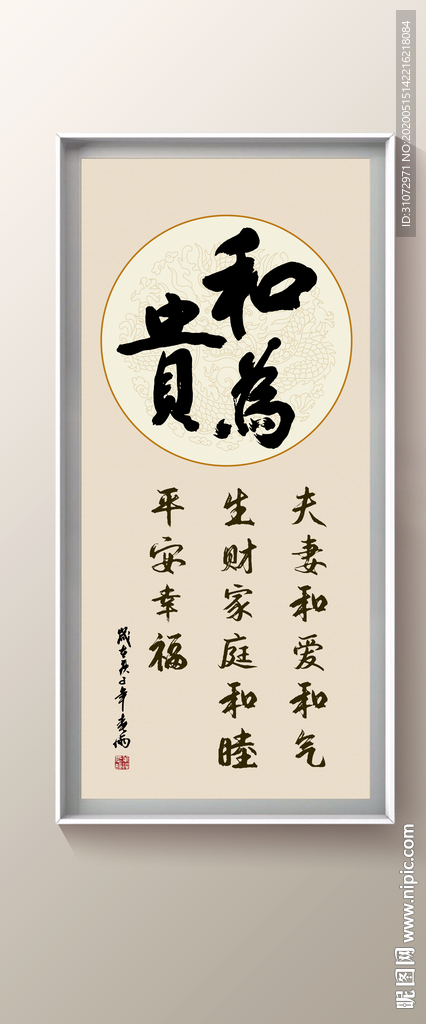 和為貴
夫妻和爱和气
生财家庭和睦
平安幸福
歲在庚子年春雨
ID:31072971 NO:20200515142216218084
昵图网 www.nipic.com